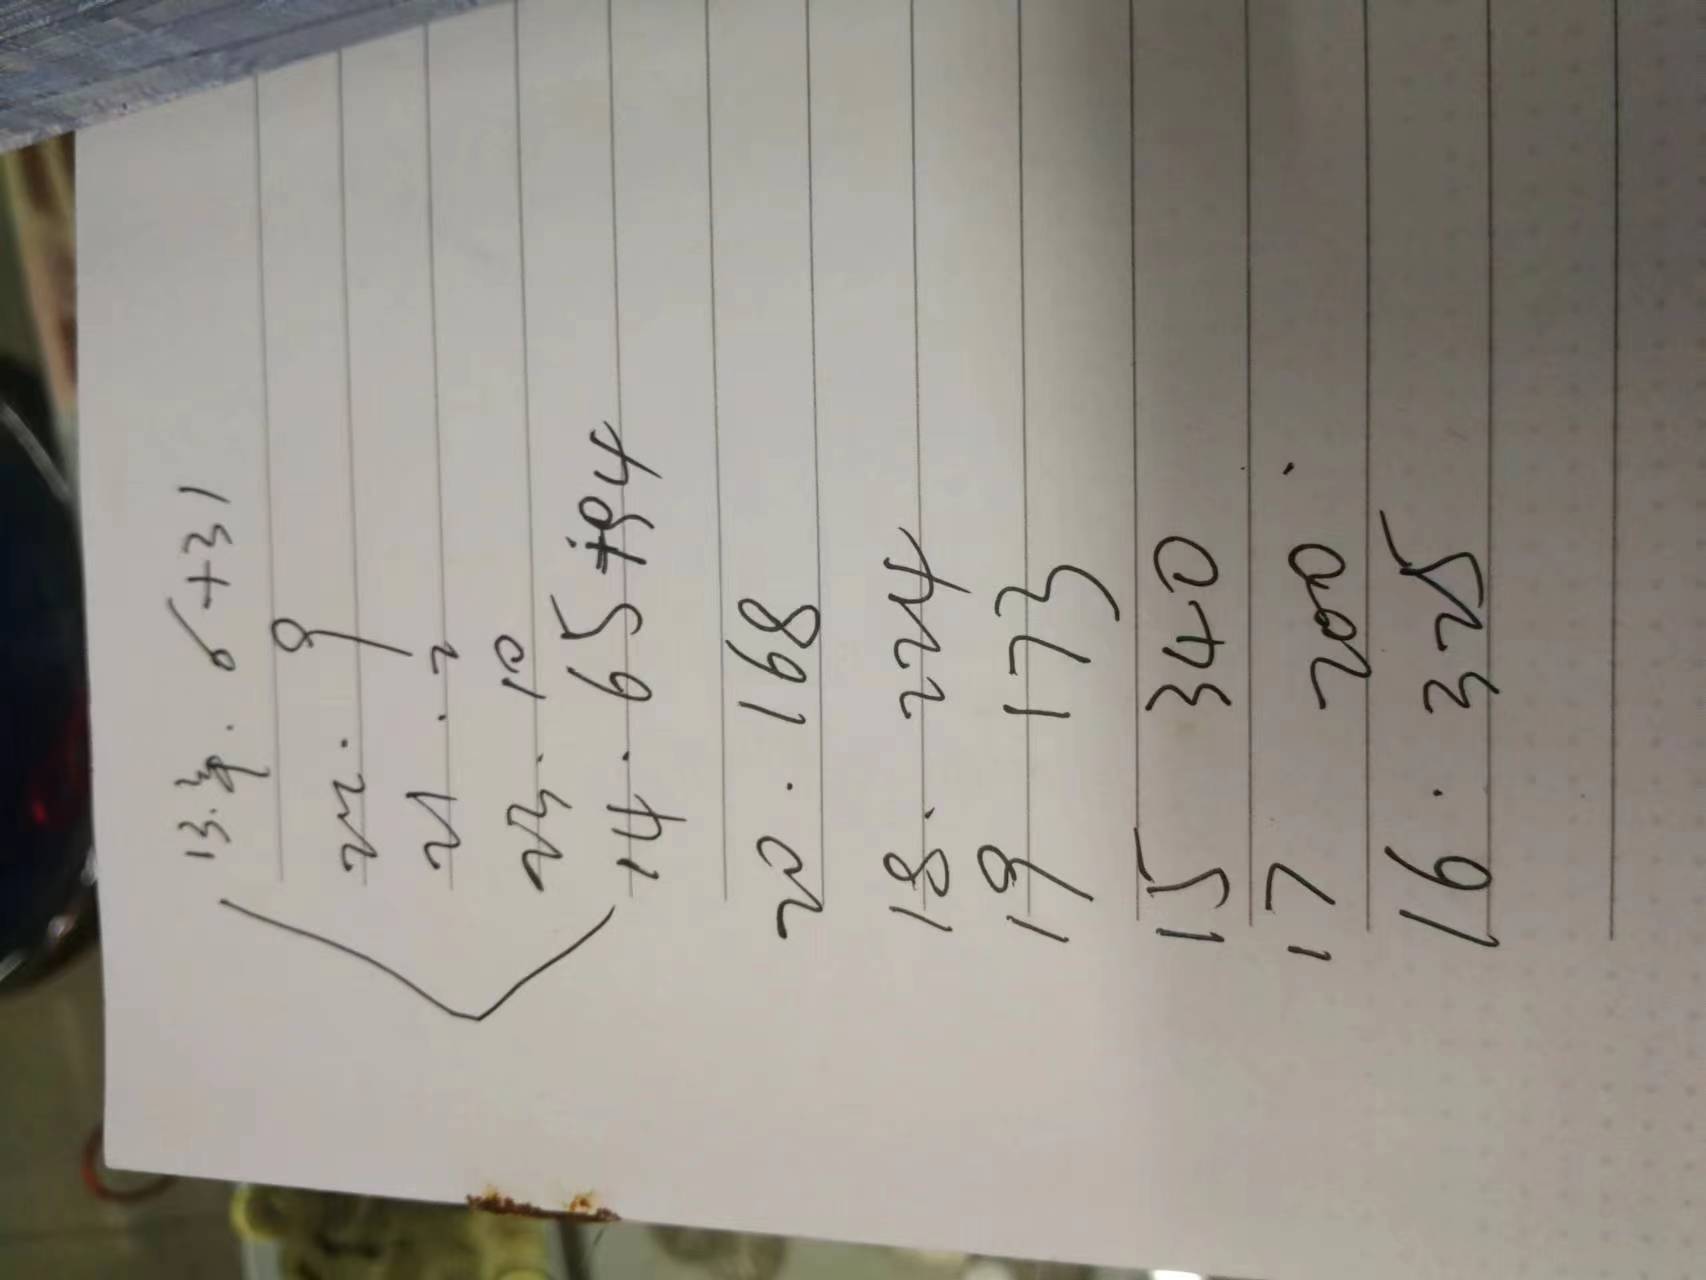 13. 6+31
22. 9
21. 2
23. 10
14. 65+94
20. 168
18. 224
19 173
15 340
17 200.
16. 325